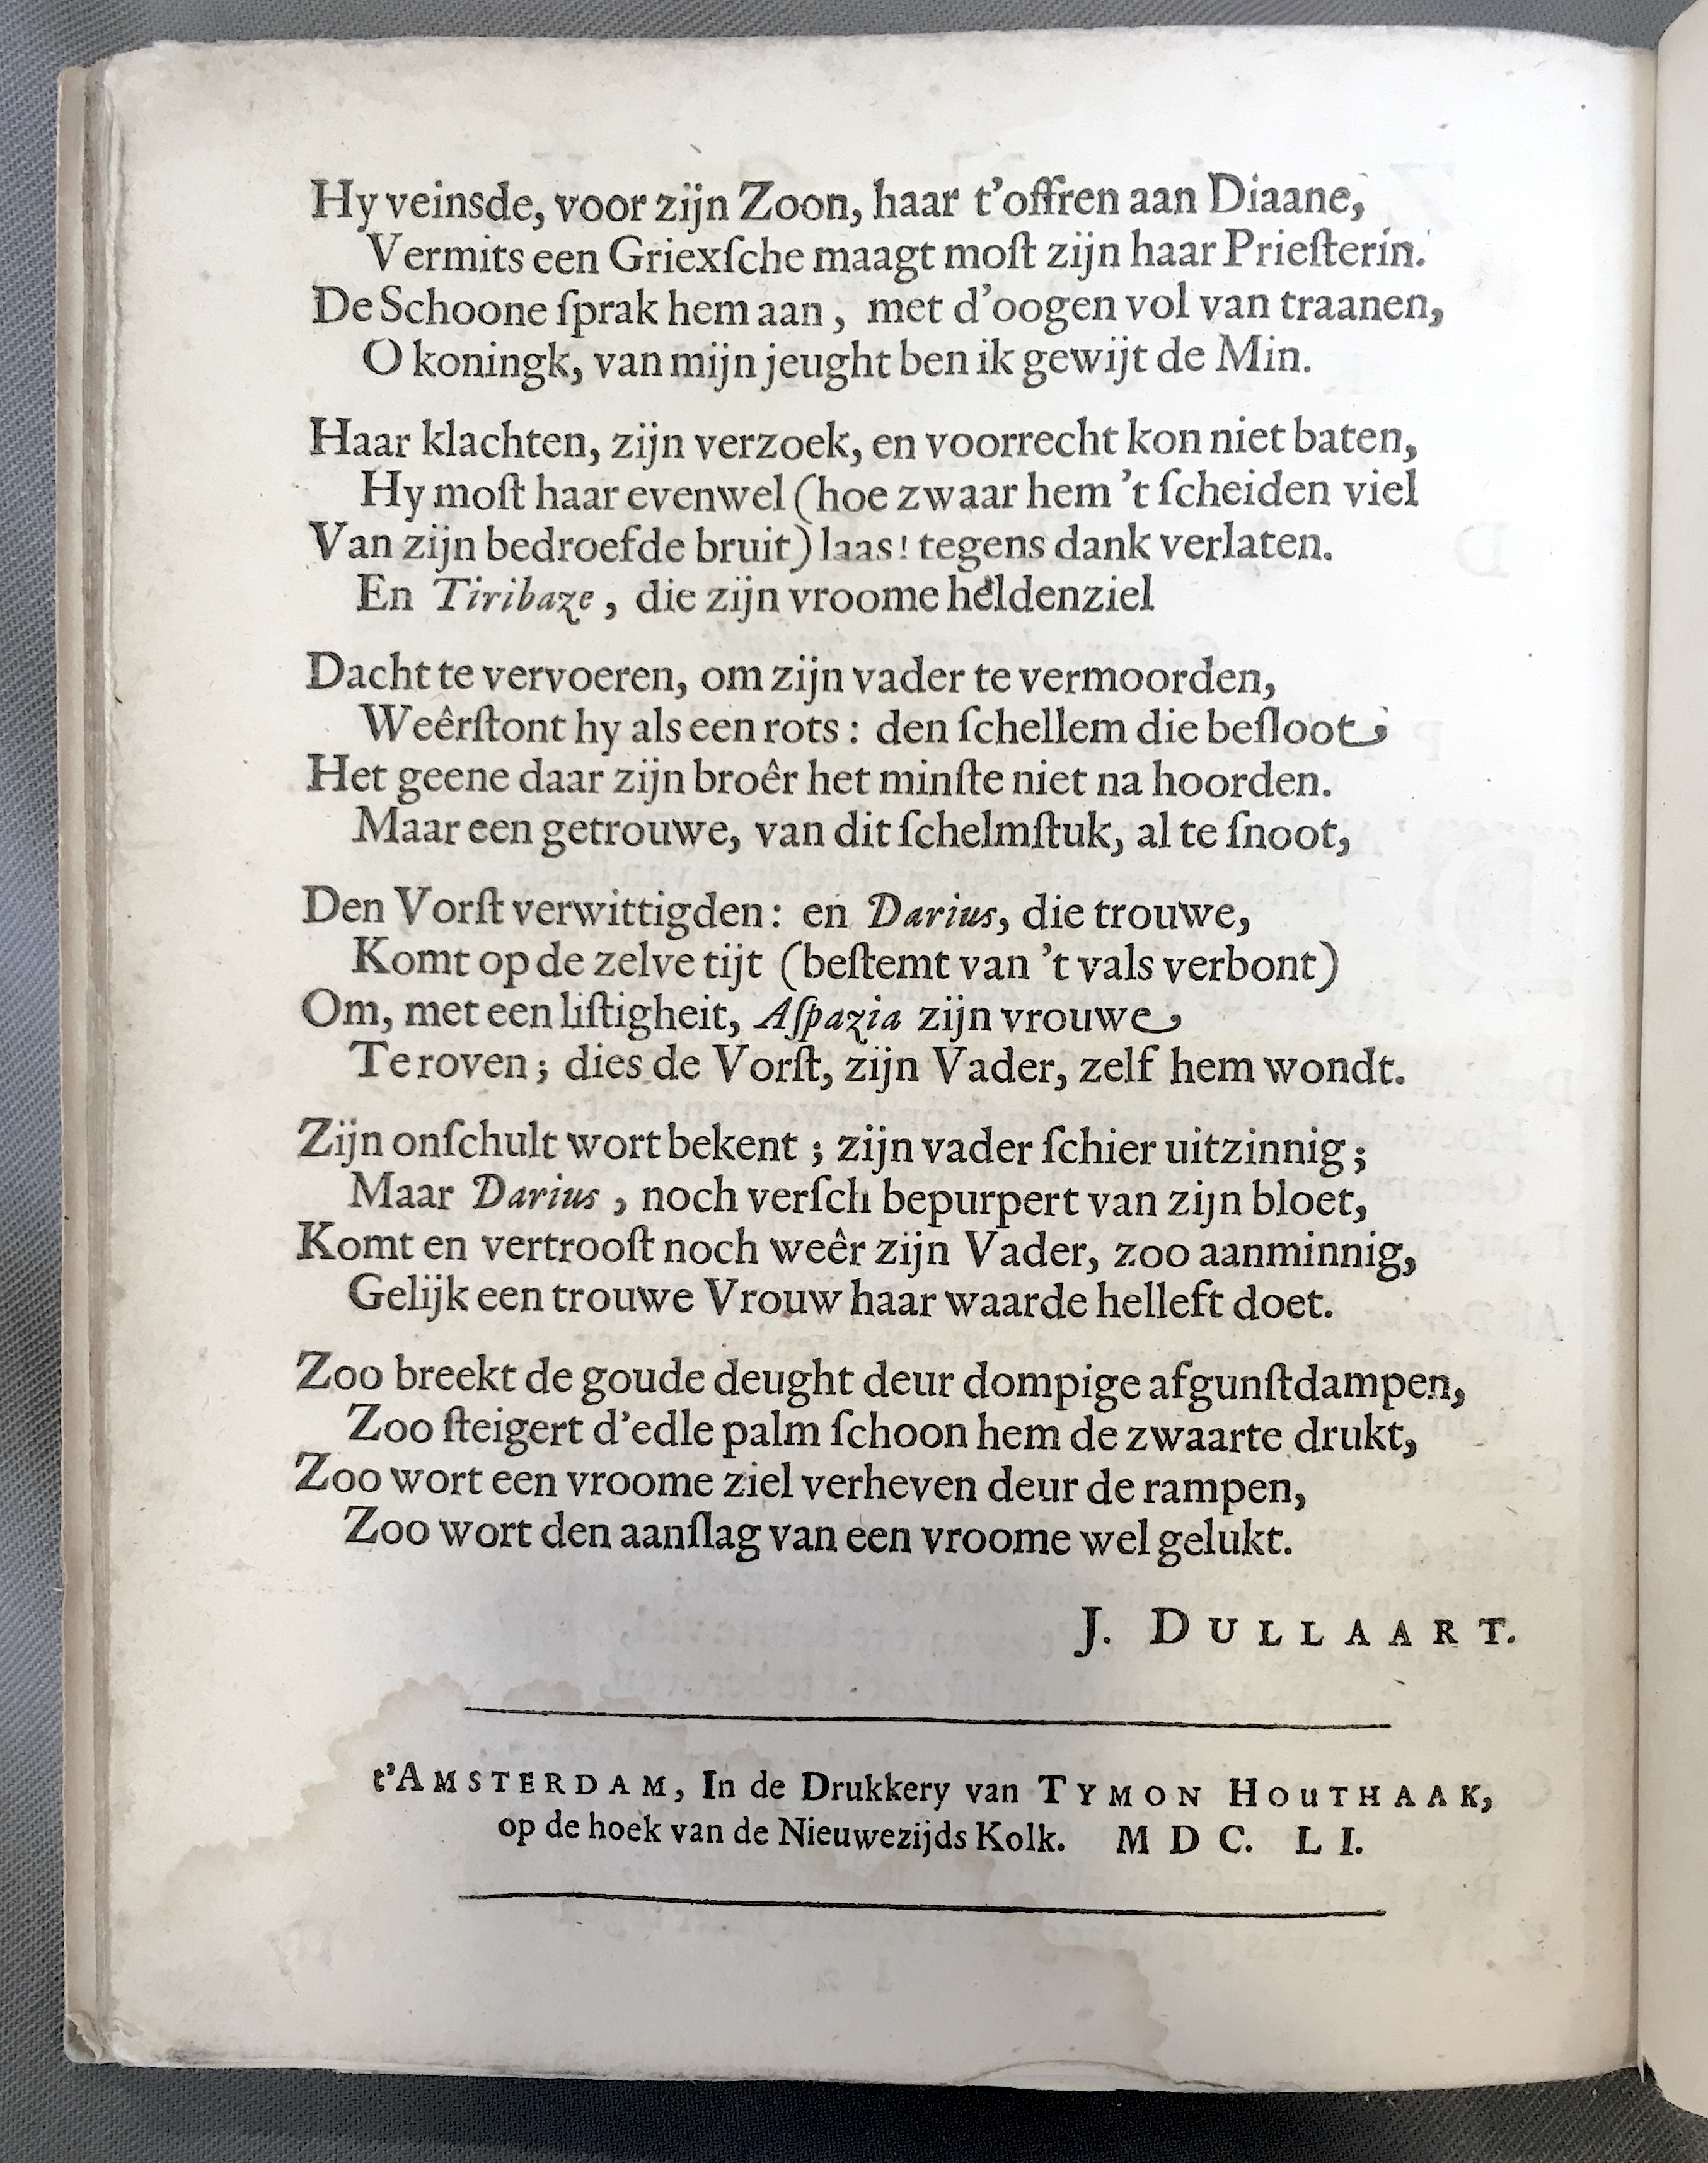 Hy veinsde, voor zijn Zoon, haar t'offren aan Diaane,
Vermits een Griexſche maagt moſt zijn haar Prieſterin.
De Schoone ſprak hem aan, met d'oogen vol van traanen,
O koningk, van mijn jeught ben ik gewijt de Min.
Haar klachten, zijn verzoek, en voorrecht kon niet baten,
Hy moſt haar evenwel (hoe zwaar hem 't ſcheiden viel
Van zijn bedroefde bruit) laas! tegens dank verlaten.
En Tiribaze, die zijn vroome heldenziel
Dacht te vervoeren, om zijn vader te vermoorden,
Weêrſtont hy als een rots: den ſchellem die beſloot
Het geene daar zijn broêr het minſte niet na hoorden.
Maar een getrouwe, van dit ſchelmſtuk, al te ſnoot,
Den Vorſt verwittigden: en Darius, die trouwe,
Komt op de zelve tijt (beſtemt van 't vals verbont)
Om, met een liſtigheit, Aſpazia zijn vrouwe
Te roven; dies de Vorſt, zijn Vader, zelf hem wondt.
Zijn onſchult wort bekent; zijn vader ſchier uitzinnig;
Maar Darius, noch verſch bepurpert van zijn bloet,
Komt en vertrooſt noch weêr zijn Vader, zoo aanminnig,
Gelijk een trouwe Vrouw haar waarde helleft doet.
Zoo breekt de goude deught deur dompige afgunſtdampen,
Zoo ſteigert d'edle palm ſchoon hem de zwaarte drukt,
Zoo wort een vroome ziel verheven deur de rampen,
Zoo wort den aanſlag van een vroome wel gelukt.
J. DULLAART.
t'AMSTERDAM, In de Drukkery van TYMON HOUTHAAK,
op de hoek van de Nieuwezijds Kolk. MDC. LI.